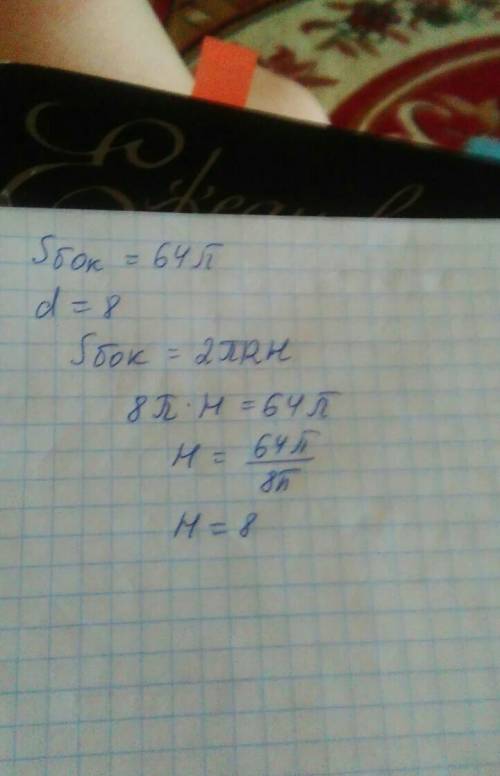 Sбок = 64π
d = 8
Sбок = 2πRH
8π · H = 64π
H = 64π / 8π
H = 8